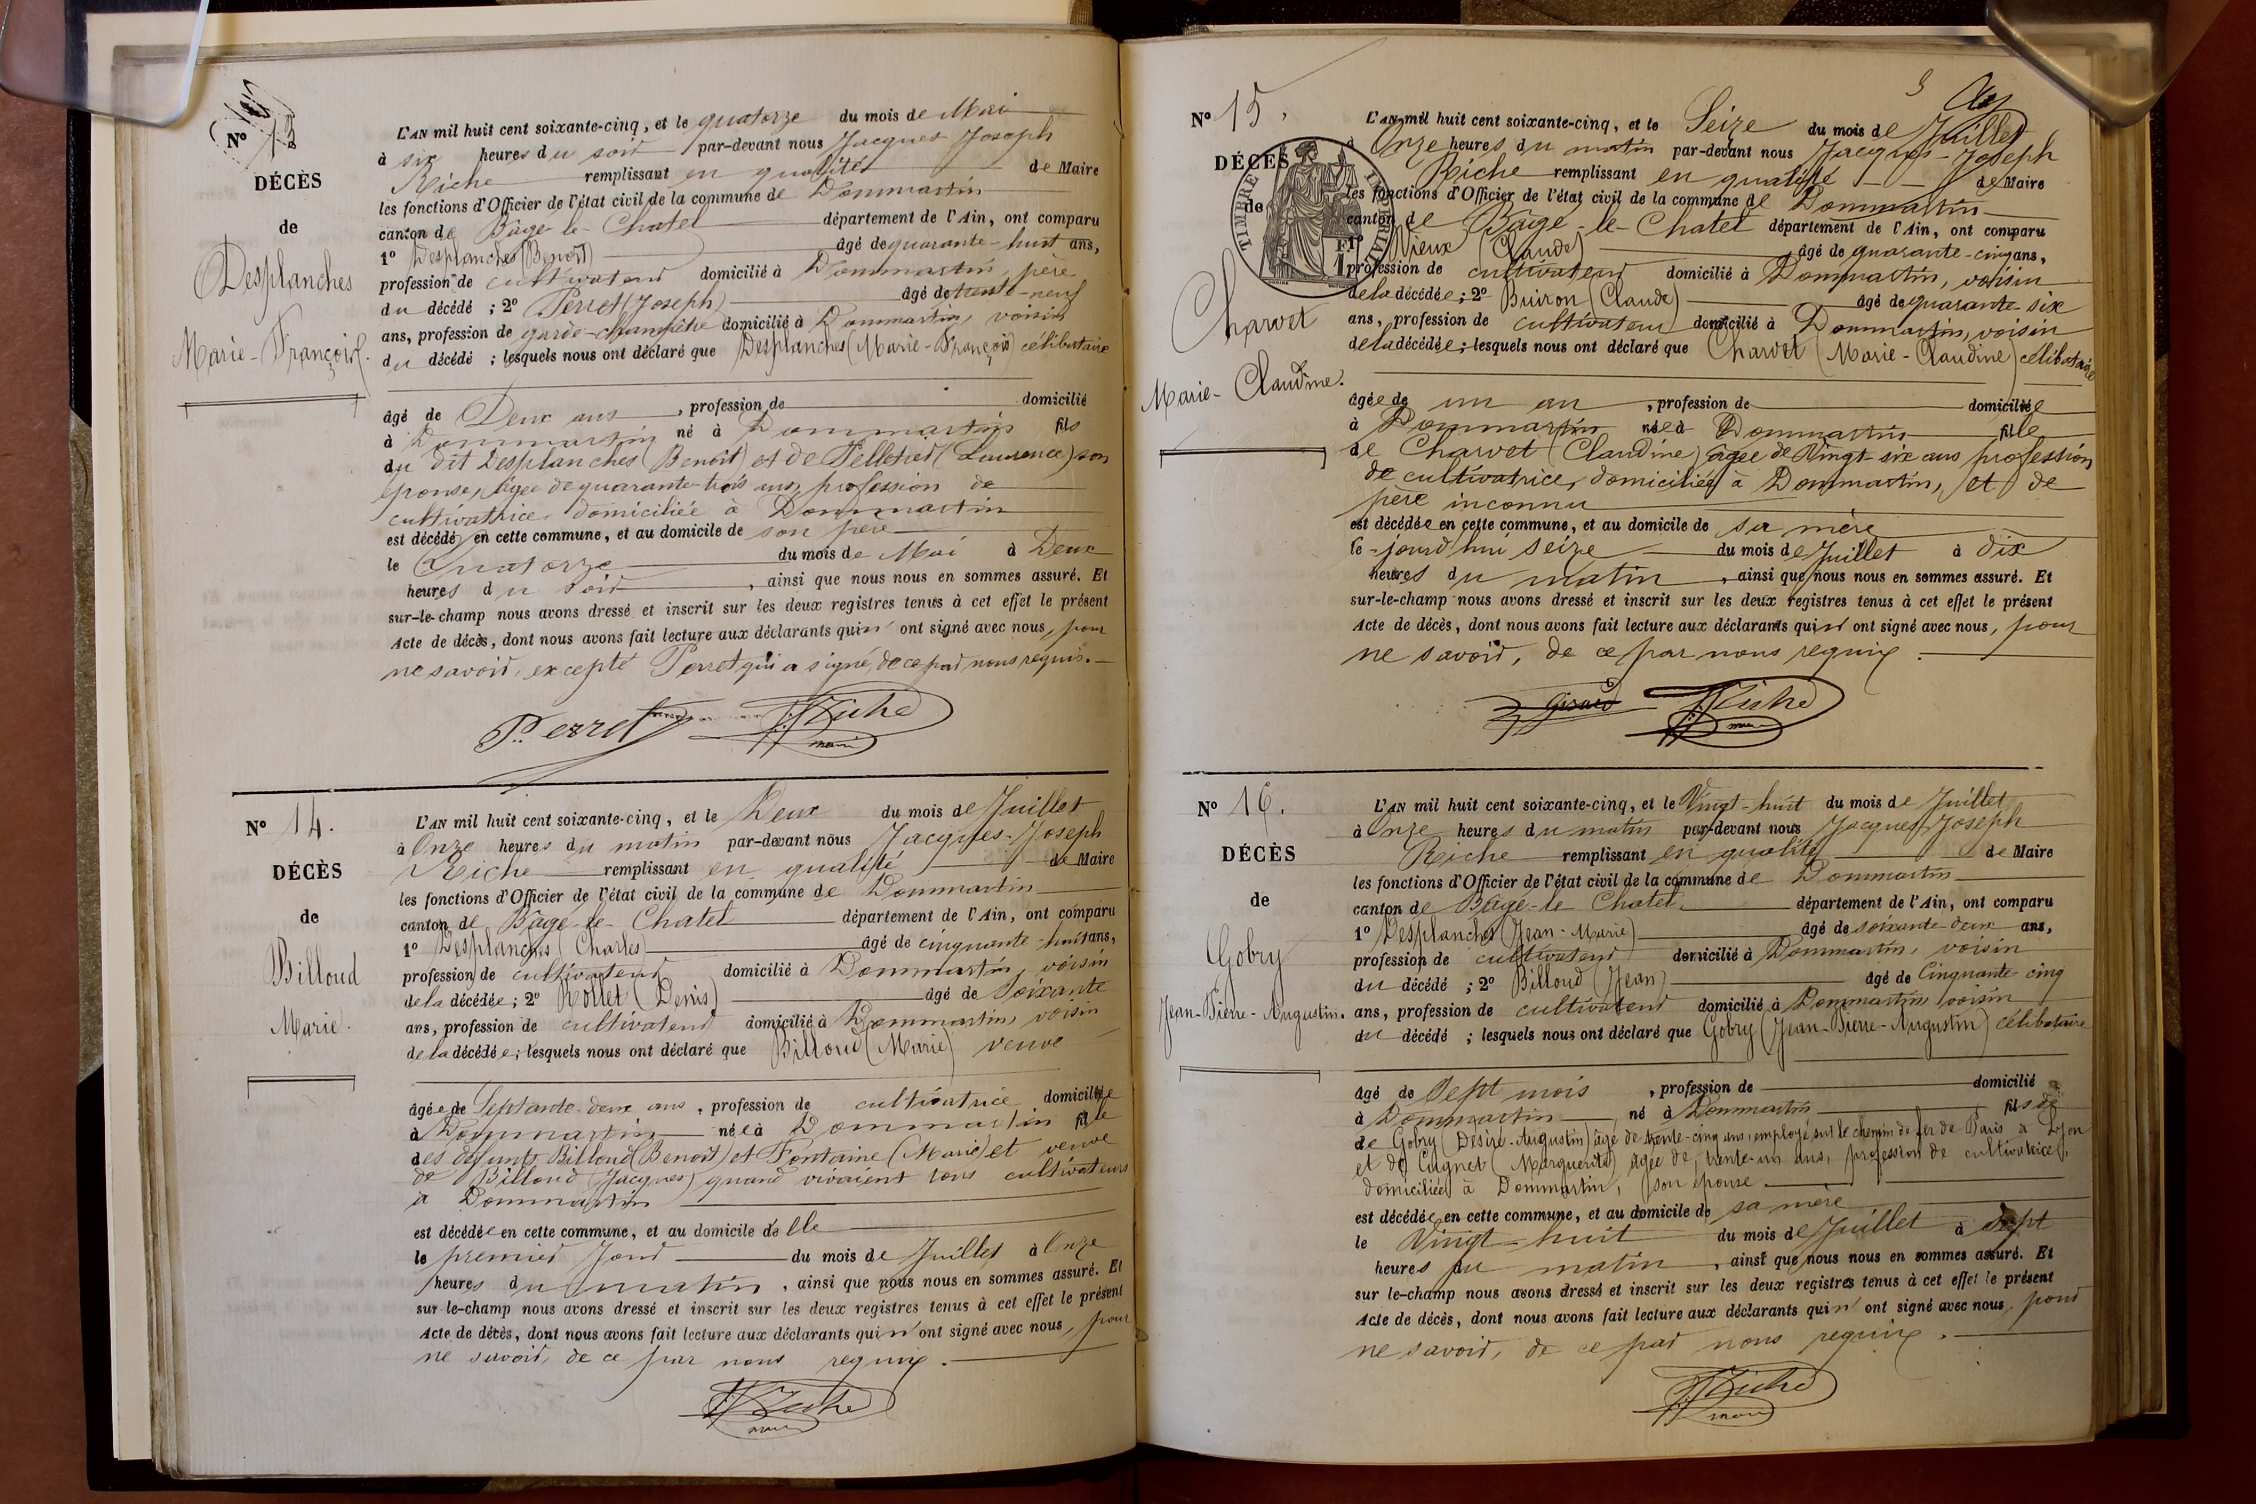 Nº 13
DÉCÈS
de
Desplanches
Marie-François.
L'AN mil huit cent soixante-cinq, et le quatorze du mois de Mai
à six heures du soir par-devant nous Jacques Joseph
Riche remplissant en qualité de Maire
les fonctions d'Officier de l'état civil de la commune de Dommartin
canton de Bâgé-le-Chatel département de l'Ain, ont comparu
1º Desplanches (Benoit) âgé de quarante-huit ans,
profession de cultivateur domicilié à Dommartin, père
du décédé ; 2º Perret (Joseph) âgé de trente-neuf
ans, profession de garde-champêtre domicilié à Dommartin, voisin
du décédé ; lesquels nous ont déclaré que Desplanches (Marie-François) célibataire
âgé de Deux ans, profession de domicilié
à Dommartin né à Dommartin fils
du dit Desplanches (Benoit) et de Pelletier (Laurence) son
épouse, âgée de quarante-trois ans, profession de
cultivatrice domiciliée à Dommartin
est décédé en cette commune, et au domicile de son père
le Quatorze du mois de Mai à Deux
heures du soir, ainsi que nous nous en sommes assuré. Et
sur-le-champ nous avons dressé et inscrit sur les deux registres tenus à cet effet le présent
Acte de décès, dont nous avons fait lecture aux déclarants qui n'ont signé avec nous, pour
ne savoir, excepté Perret qui a signé, de ce par nous requis.
Perret Riche
maire
Nº 14.
DÉCÈS
de
Billoud
Marie.
L'AN mil huit cent soixante-cinq, et le Deux du mois de Juillet
à Onze heures du matin par-devant nous Jacques-Joseph
Riche remplissant en qualité de Maire
les fonctions d'Officier de l'état civil de la commune de Dommartin
canton de Bâgé-le-Chatel département de l'Ain, ont comparu
1º Desplanches (Charles) âgé de cinquante-huit ans,
profession de cultivateur domicilié à Dommartin, voisin
de la décédée ; 2º Rollet (Denis) âgé de Soixante
ans, profession de cultivateur domicilié à Dommartin, voisin
de la décédée ; lesquels nous ont déclaré que Billoud (Marie) veuve
âgée de Septante-deux ans, profession de cultivatrice domiciliée
à Dommartin née à Dommartin fille
des défunts Billoud (Benoit) et Fontaine (Marie) et veuve
de Billoud (Jacques) quand vivaient tous cultivateurs
à Dommartin
est décédée en cette commune, et au domicile d'elle
le premier Jour du mois de Juillet à Onze
heures du matin, ainsi que nous nous en sommes assuré. Et
sur-le-champ nous avons dressé et inscrit sur les deux registres tenus à cet effet le présent
Acte de décès, dont nous avons fait lecture aux déclarants qui n'ont signé avec nous, pour
ne savoir, de ce par nous requis.
Riche
maire
Nº 15.
DÉCÈS
de
Charvet
Marie-Claudine.
TIMBRE IMPÉRIAL
L'AN mil huit cent soixante-cinq, et le Seize du mois de Juillet
Onze heures du matin par-devant nous Jacques-Joseph
Riche remplissant en qualité de Maire
les fonctions d'Officier de l'état civil de la commune de Dommartin
canton de Bâgé-le-Chatel département de l'Ain, ont comparu
1º Vieux (Claude) âgé de quarante-cinq ans,
profession de cultivateur domicilié à Dommartin, voisin
de la décédée ; 2º Buiron (Claude) âgé de quarante-six
ans, profession de cultivateur domicilié à Dommartin, voisin
de la décédée ; lesquels nous ont déclaré que Charvet (Marie-Claudine) célibataire
âgée de un an, profession de domiciliée
à Dommartin née à Dommartin fille
de Charvet (Claudine) âgée de Vingt-six ans profession
de cultivatrice, domiciliée à Dommartin, et de
père inconnu
est décédée en cette commune, et au domicile de sa mère
le-jourd'hui seize du mois de Juillet à dix
heures du matin, ainsi que nous nous en sommes assuré. Et
sur-le-champ nous avons dressé et inscrit sur les deux registres tenus à cet effet le présent
Acte de décès, dont nous avons fait lecture aux déclarants qui n'ont signé avec nous, pour
ne savoir, de ce par nous requis.
Riche
maire
Nº 16.
DÉCÈS
de
Gobry
Jean-Pierre-Augustin.
L'AN mil huit cent soixante-cinq, et le Vingt-huit du mois de Juillet
à Onze heures du matin par-devant nous Jacques-Joseph
Riche remplissant en qualité de Maire
les fonctions d'Officier de l'état civil de la commune de Dommartin
canton de Bâgé-le-Chatel département de l'Ain, ont comparu
1º Desplanches (Jean-Marie) âgé de soixante-deux ans,
profession de cultivateur domicilié à Dommartin, voisin
du décédé ; 2º Billoud (Jean) âgé de Cinquante cinq
ans, profession de cultivateur domicilié à Dommartin voisin
du décédé ; lesquels nous ont déclaré que Gobry (Jean-Pierre-Augustin) célibataire
âgé de Sept mois, profession de domicilié
à Dommartin né à Dommartin fils de
de Gobry (Désiré-Augustin) âgé de trente-cinq ans, employé sur le chemin de fer de Paris à Lyon
et de Cugnet (Marguerite) âgée de trente-un ans, profession de cultivatrice,
domiciliée à Dommartin, son épouse
est décédée en cette commune, et au domicile de sa mère
le Vingt-huit du mois de Juillet à sept
heures du matin, ainsi que nous nous en sommes assuré. Et
sur le-champ nous avons dressé et inscrit sur les deux registres tenus à cet effet le présent
Acte de décès, dont nous avons fait lecture aux déclarants qui n'ont signé avec nous, pour
ne savoir, de ce par nous requis.
Riche
maire